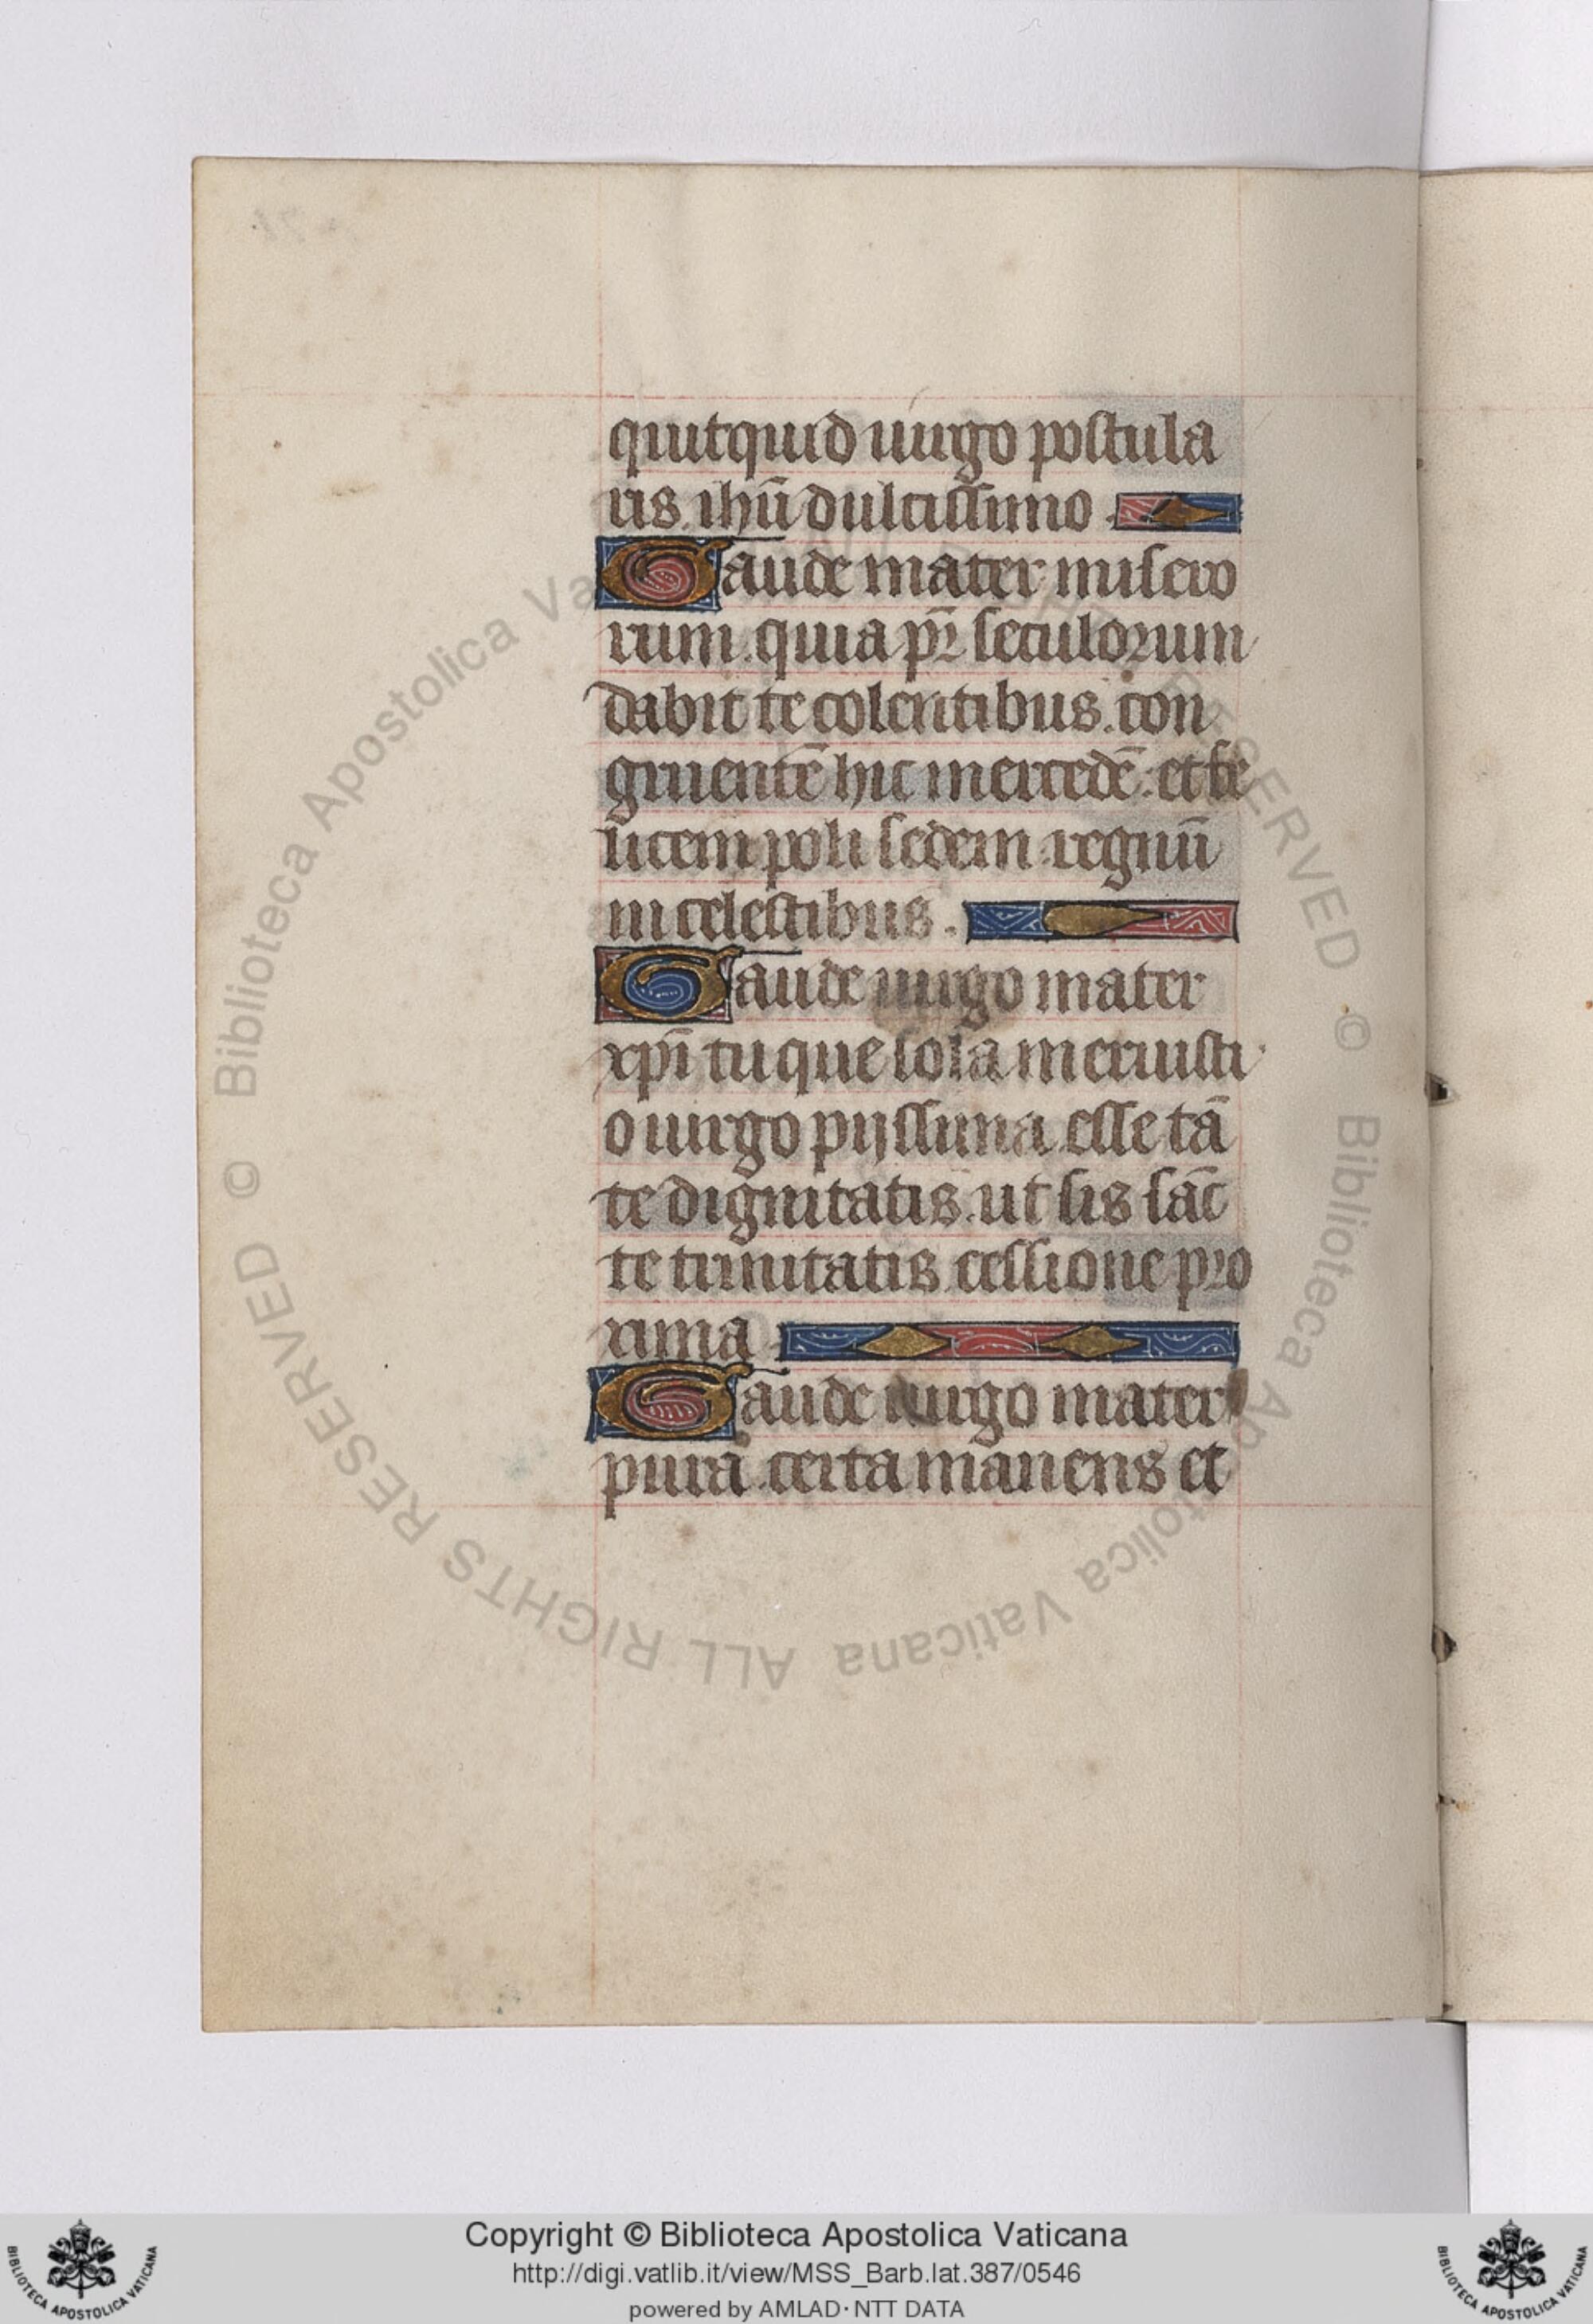 quitquid uirgo postula
ris. ihū dulcissimo.
Gaude mater misero
rum. quia pr̄ seculorum
dabit te colentibus. con
gruentē hic mercedē. et fe
licem poli sedem. regnū
in celestibus.
Gaude uirgo mater
xp̄i tu que sola meruisti
o uirgo pijssima esse tā
te dignitatis. ut sis sāc
te trinitatis cessione pro
xima.
Gaude uirgo mater
pura certa manens et
© Biblioteca Apostolica Vaticana ALL RIGHTS RESERVED © Biblioteca Apostolica Vaticana ALL RIGHTS RESERVED
Copyright © Biblioteca Apostolica Vaticana
http://digi.vatlib.it/view/MSS_Barb.lat.387/0546
powered by AMLAD·NTT DATA
BIBLIOTECA APOSTOLICA VATICANA
BIBLIOTECA APOSTOLICA VATICANA